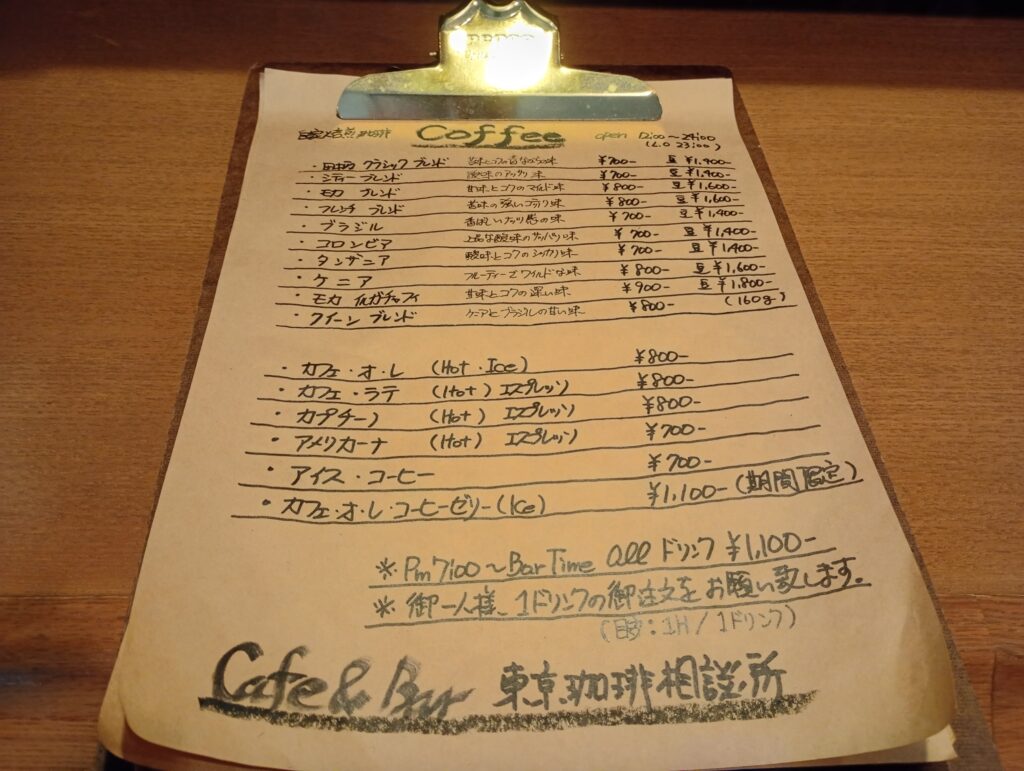 自家焙煎珈琲 Coffee open 12:00〜24:00
(L.O 23:00)
・ クラシック ブレンド 苦味とコクの昔ながらの味 ¥700- 豆 ¥1,400-
・シティー ブレンド 酸味のアッサリ味 ¥700- 豆 ¥1,400-
・モカ ブレンド 甘味とコクのマイルド味 ¥800- 豆 ¥1,600-
・フレンチ ブレンド 苦味の強いコッテリ味 ¥800- 豆 ¥1,600-
・ブラジル 香ばしいナッツ感の味 ¥700- 豆 ¥1,400-
・コロンビア 上品な酸味のサッパリ味 ¥700- 豆 ¥1,400-
・タンザニア 酸味とコクのシッカリ味 ¥700- 豆 ¥1,400-
・ケニア フルーティーでワイルドな味 ¥800- 豆 ¥1,600-
・モカ イルガチェフィ 甘味とコクの深い味 ¥900- 豆 ¥1,800-
・クイーン ブレンド ケニアとブラジルの甘い味 ¥800- (160g)
・カフェ・オ・レ (Hot・Ice) ¥800-
・カフェ・ラテ (Hot) エスプレッソ ¥800-
・カプチーノ (Hot) エスプレッソ ¥800-
・アメリカーナ (Hot) エスプレッソ ¥700-
・アイス・コーヒー ¥700-
・カフェ・オ・レ・コーヒーゼリー(Ice) ¥1,100-(期間限定)
※ Pm7:00〜Bar Time all ドリンク ¥1,100-
※ 御一人様、1ドリンクの御注文をお願い致します。
(目安:1H/1ドリンク)
Cafe & Bar 東京珈琲相談所